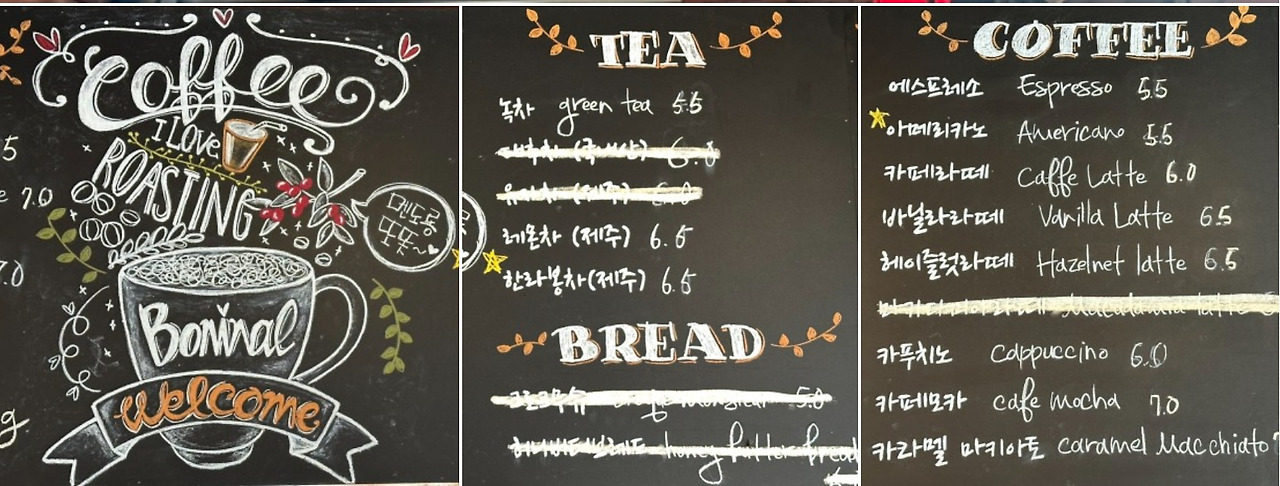 Coffee
I LOVE
ROASTING
멘도롱
또똣~
Boninal
welcome
5
7.0
7.0
g
TEA
녹차 green tea 5.5
대추차 (국내산) 6.0
유자차 (제주) 6.0
레몬차 (제주) 6.5
한라봉차(제주) 6.5
BREAD
크로크무슈 5.0
허니버터브레드 honey butter bread
COFFEE
에스프레소 Espresso 5.5
아메리카노 Americano 5.5
카페라떼 Caffe Latte 6.0
바닐라라떼 Vanilla Latte 6.5
헤이즐럿라떼 Hazelnet latte 6.5
마카다미아라떼 Macadamia latte
카푸치노 Cappuccino 6.0
카페모카 cafe mocha 7.0
카라멜 마키아토 caramel Macchiato